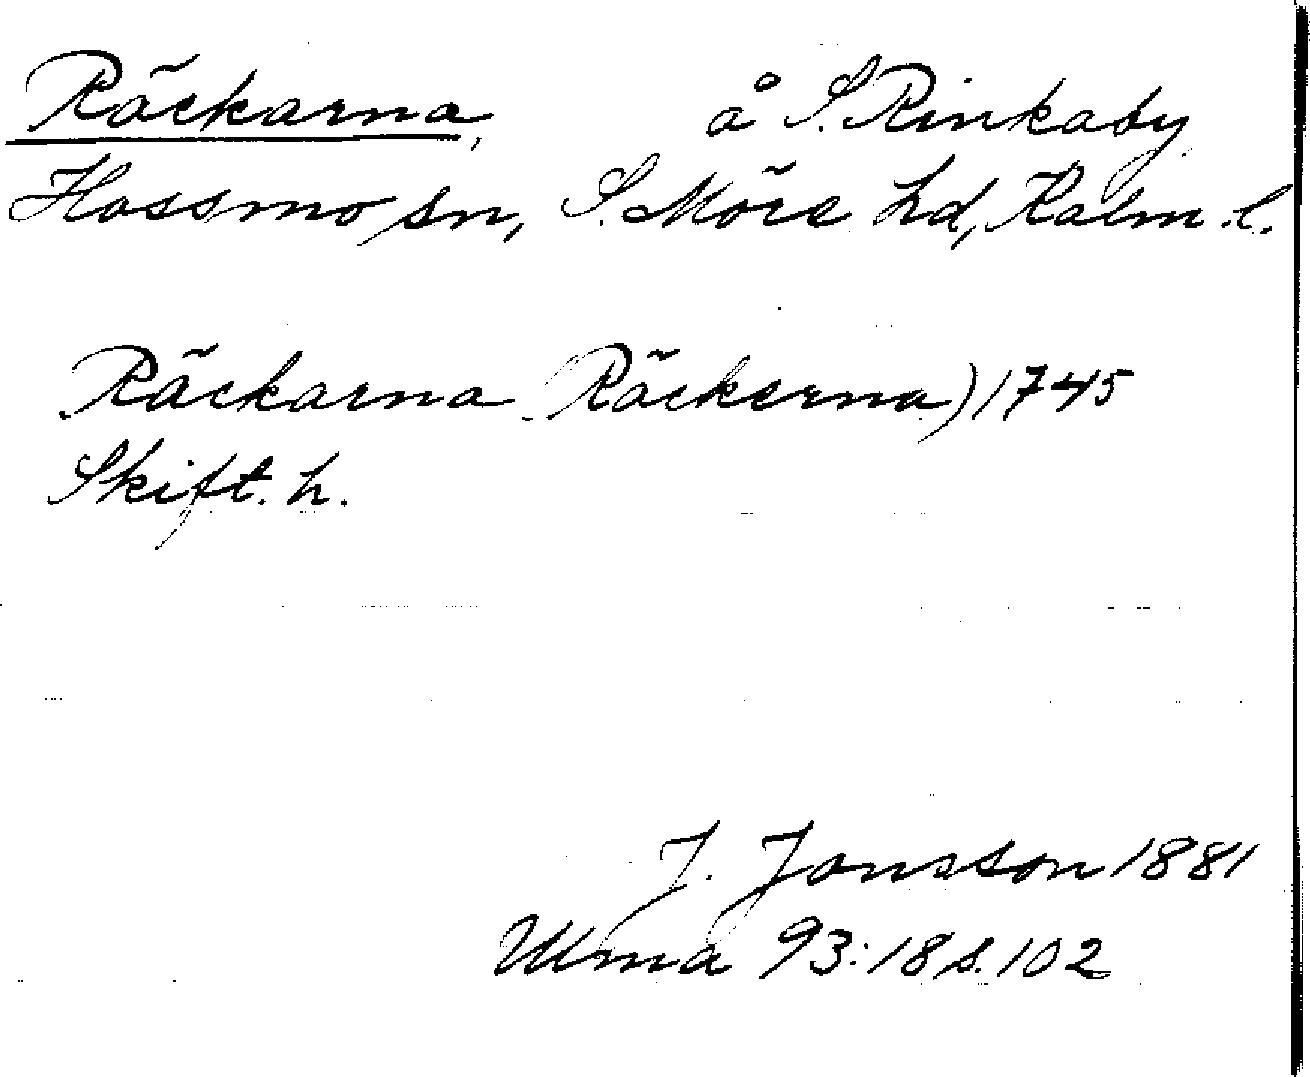 Räckarna, å S. Rinkaby
Hossmo sn, S. Möre hd, Kalm. l.
Räckarna (Räckerna) 1745
Skift. h.
J. Jonsson 1881
Ulma 93:18 s. 102